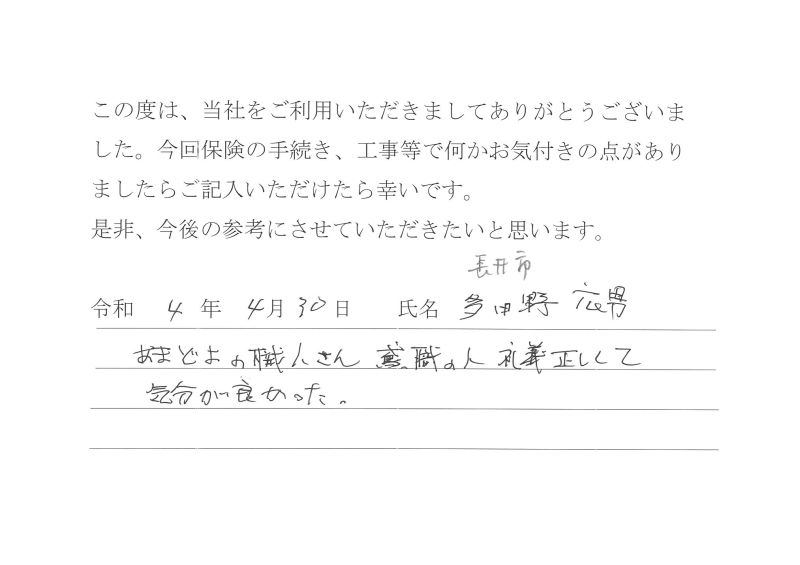 この度は、当社をご利用いただきましてありがとうございま
した。今回保険の手続き、工事等で何かお気付きの点があり
ましたらご記入いただけたら幸いです。
是非、今後の参考にさせていただきたいと思います。
長井市
令和 4 年 4月30日 氏名 多田野 広男
あまどよの職人さん 鳶職の人 礼義正しくて
気分が良かった。